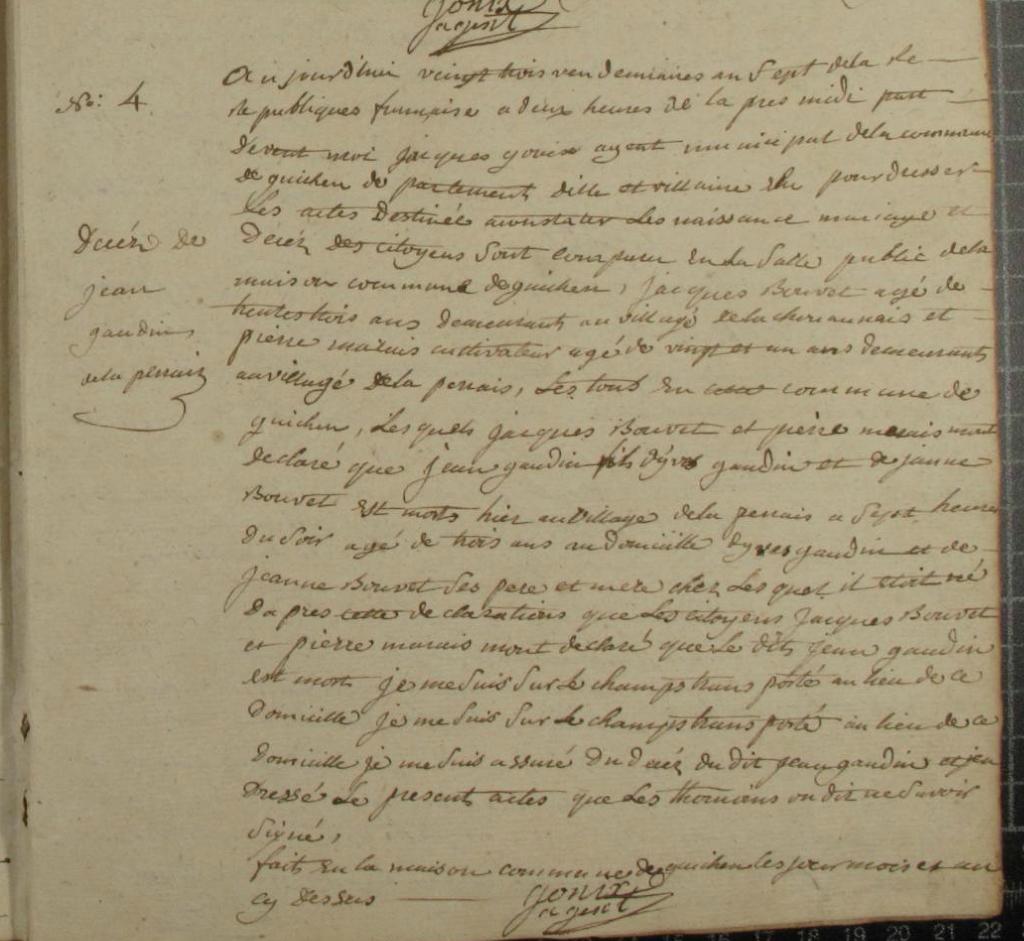 Gonix
agent
No: 4
Aujourd'hui vingt trois vendemiaires an Sept dela Re
Re publiques francaise a deux heures de la pres midi part
devent moi jacques gonix agent municipal dela commune
de guichen de partement dille et villaine Elu pour dresser
Les actes Destinée aconstater Les naissance mariage et
Decéz des citoyens Sont comparu En La Salle public dela
maison commune deguichen, jacques Bouvet agé de
trentetrois ans demeurants au village dela
pierre marais cultivateur agé de vingt et un ans demeurants
auvillagé dela perrais, Les tous En cette commune de
guichen, Lesquels jacques Bouvet et pierre marais mont
declaré que jean gaudin fils dyves gaudin et de janne
Bouvet Est morts hier auvillage dela perrais a Sept heures
du Soir agé de trois ans audomicille dyves gaudin et de
jeanne Bouvet Ses pere et mere chez Les quel il etoit né
Da pres cette declarations que Les citoyens jacques Bouvet
et pierre marais mont declaré que Le dits jean gaudin
est morts je me Suis Sur Le champs trans porté au lieu de ce
Domicille je me Suis Sur Le champs trans porté au lieu de ce
Domicille je me Suis assuré Du Decéz du dit jean gaudin et jen
Dressé Le present actes que Les thomoins on dit ne Savoir
Signé,
faits En la maison commune de guichen les jour mois et an
cy dessus
Gonix
agent
Decéz de
jean
gaudin
dela perraiz